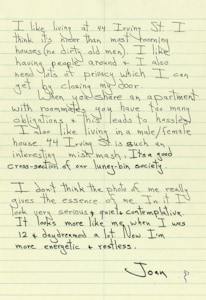 I like living at 44 Irving St. I
think it's nicer than most rooming
houses (no dirty old men). I like
having people around & I also
need lots of privacy which I can
get by closing my door.
When you share an apartment
with roommates you have too many
obligations & this leads to hassles.
I also like living in a male/female
house. 44 Irving St is such an
interesting mish mash. Its a good
cross-section of our luney-bin society.
I don't think the photo of me really
gives the essence of me. In it I
look very serious & quiet & contemplative.
It looks more like me when I was
12 & daydreamed a lot. Now I'm
more energetic & restless.
Joan